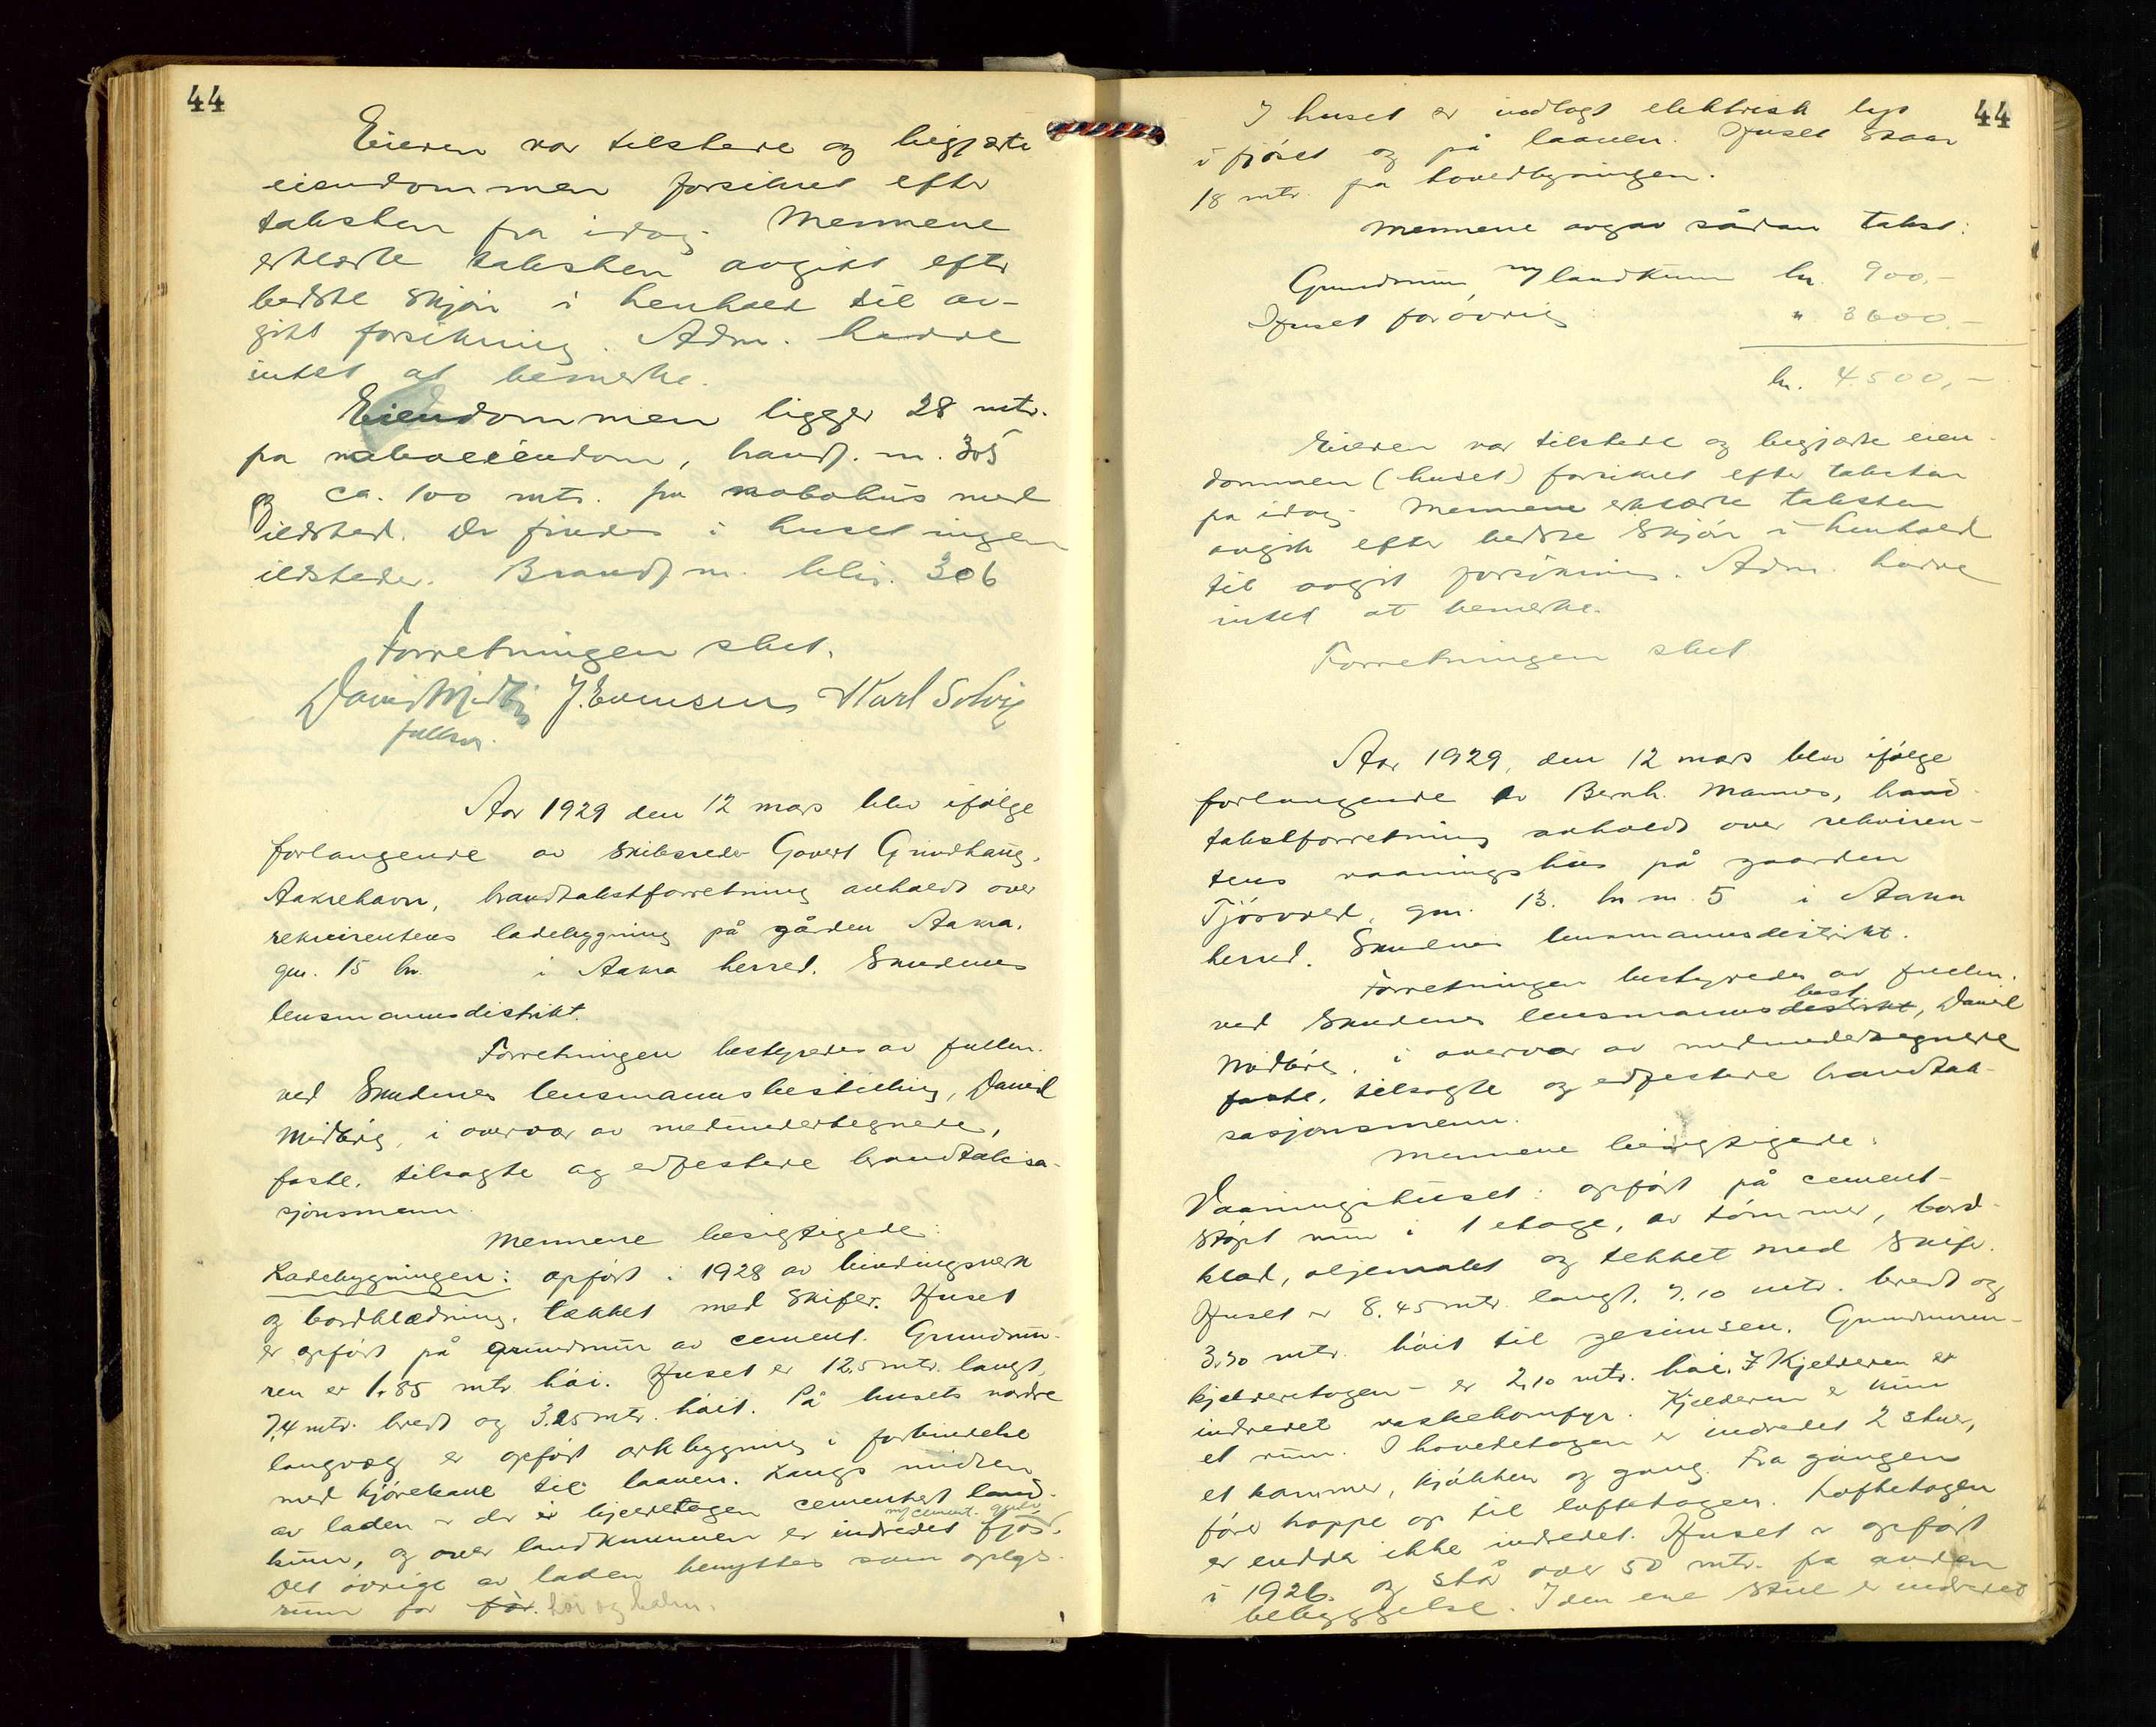 44
Eieren var tilstede og begjærte
eiendommen forsikret efter
taksten fra idag. Mennene
erklærte taksten avgitt efter
bedste skjøn i henhold til av-
gitt forsikring. Adm. hadde
intet at bemerke.
Eiendommen ligger 28 mtr.
fra naboeiendom, brandf. nr. 305
og ca. 100 mtr. fra nabohus med
ildsted. Der findes i huset ingen
ildsteder. Brandf nr. bliv. 306
Forretningen slut.
David Midbøe J. Evensen Karl Solvig
fullm.
Aar 1929 den 12 mars blev ifølge
forlangende av skibsreder Govert Grindhaug,
Aakrehavn, brandtakstforretning avholdt over
rekvirentens ladebygning på gården Aakra,
gnr. 15 bn. i Aakra herred. Skudenes
lensmannsdistrikt.
Forretningen bestyredes av fullm.
ved Skudenes lensmannsbestilling, David
Midbøe, i overvær av medundertegnede,
faste, tilsagte og edfestede brandtaksa-
sjonsmenn.
Mennene besigtigede:
Ladebygningen: opført i 1928 av bindingsverk
og bordklædning, tækket med skifer. Huset
er opført på grundmur av cement. Grundmu-
ren er 1.85 mtr høi. Huset er 12,5 mtr. langt,
7,4 mtr. bredt og 3.25 mtr. høit. På husets nordre
langvæg er opført arkbygning i forbindelse
med kjørebane til laaven. Langs midten
av laden - der er kjelderetagen cementert land-
kum, og over landkummen er indredet fjøs. m/cement. gulv
Det øvrige av laden benyttes som oplags-
rum for før. høi og halm.
44
I huset er indlagt elektrisk lys
i fjøset og på laaven. Huset staar
18 mtr. fra hovedbygningen.
Mennene avgav sådan takst:
Grundmur m/landkum kr. 900,-
Huset forøvrig " 3600,-
kr. 4500,-
Eieren var tilstede og begjærte eien-
dommen (huset) forsikret efter taksten
fra idag. Mennene erklærte taksten
avgitt efter bedste skjøn i henhold
til avgit forsikring. Adm. hadde
intet at bemerke.
Forretningen slut
Aar 1929, den 12 mars blev ifølge
forlangende av Bernh. Mannes, brand-
takstforretning avholdt over rekviren-
tens vaaningshus på gaarden
Tjøsvold, gnr. 13. br nr. 5 i Aakra
herred. Skudenes lensmannsdistrikt.
Forretningen bestyredes av fullm.
ved Skudenes lensmannsdistrikt, best. David
Midbøe, i overvær av medundertegnede
faste, tilsagte og edfestede brandtak-
sasjonsmenn.
Mennene besigtigede:
Vaaningshuset: opført på cement-
støpt mur i 1 etage, av tømmer, bord-
klæd, oljemalt og tekket med skifer.
Huset er 8.45 mtr. langt, 7.10 mtr. bredt og
3.30 mtr. høit til gesimsen. Grundmuren-
kjelderetagen - er 2,10 mtr. høi. I Kjelderen er
indredet vaskekomfyr. Kjelderen er kun
et rum. I hovedetagen er indredet 2 stuer,
et kammer, kjøkken og gang. Fra gangen
fører trappe op til loftetagen. Loftetagen
er endda ikke indredet. Huset er opført
i 1926. og står over 50 mtr. fra anden
bebyggelse. I den ene stue er indredet